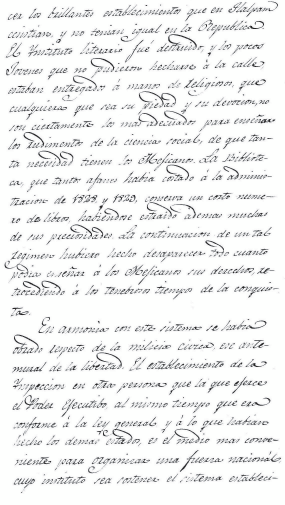 cer los brillantes establecimientos que en Tlalpam
ecsistian, y no tenian igual en la Republica
El Ynstituto literario fue destruido, y los pocos
Jovenes que no pudieron hecharse á la calle
estaban entregados á manos de Religiosos, que
cualquiera que sea su piedad y su devocion, no
son ciertamente los mas adecuados para enseñar
los rudimentos de la ciencia social, de que tan-
ta necesidad tienen los Mejicanos. La Bibliote-
ca, que tantos afanes habia costado á la adminis-
tracion de 1828 y 1829, conserva un corto nume-
ro de libros, habiendose estraido ademas muchas
de sus preciosidades. La continuacion de un tal
regimen hubiera hecho desaparecer todo cuanto
podia enseñar á los Mejicanos sus derechos, re-
trocediendo á los tenebrosos tiempos de la conquis-
ta.
En armonia con este sistema se habia
obrado respecto de la milicia civica, ese ante-
mural de la libertad. El establecimiento de la
Ynspeccion en otra persona que la que ejerce
el Poder Ejecutibo, al mismo tiempo que era
conforme á la ley general, y á lo que habian
hecho los demas Estados, es el medio mas conve-
niente para organizar una fuerza nacional,
cuyo instituto sea sostener el sistema estableci-